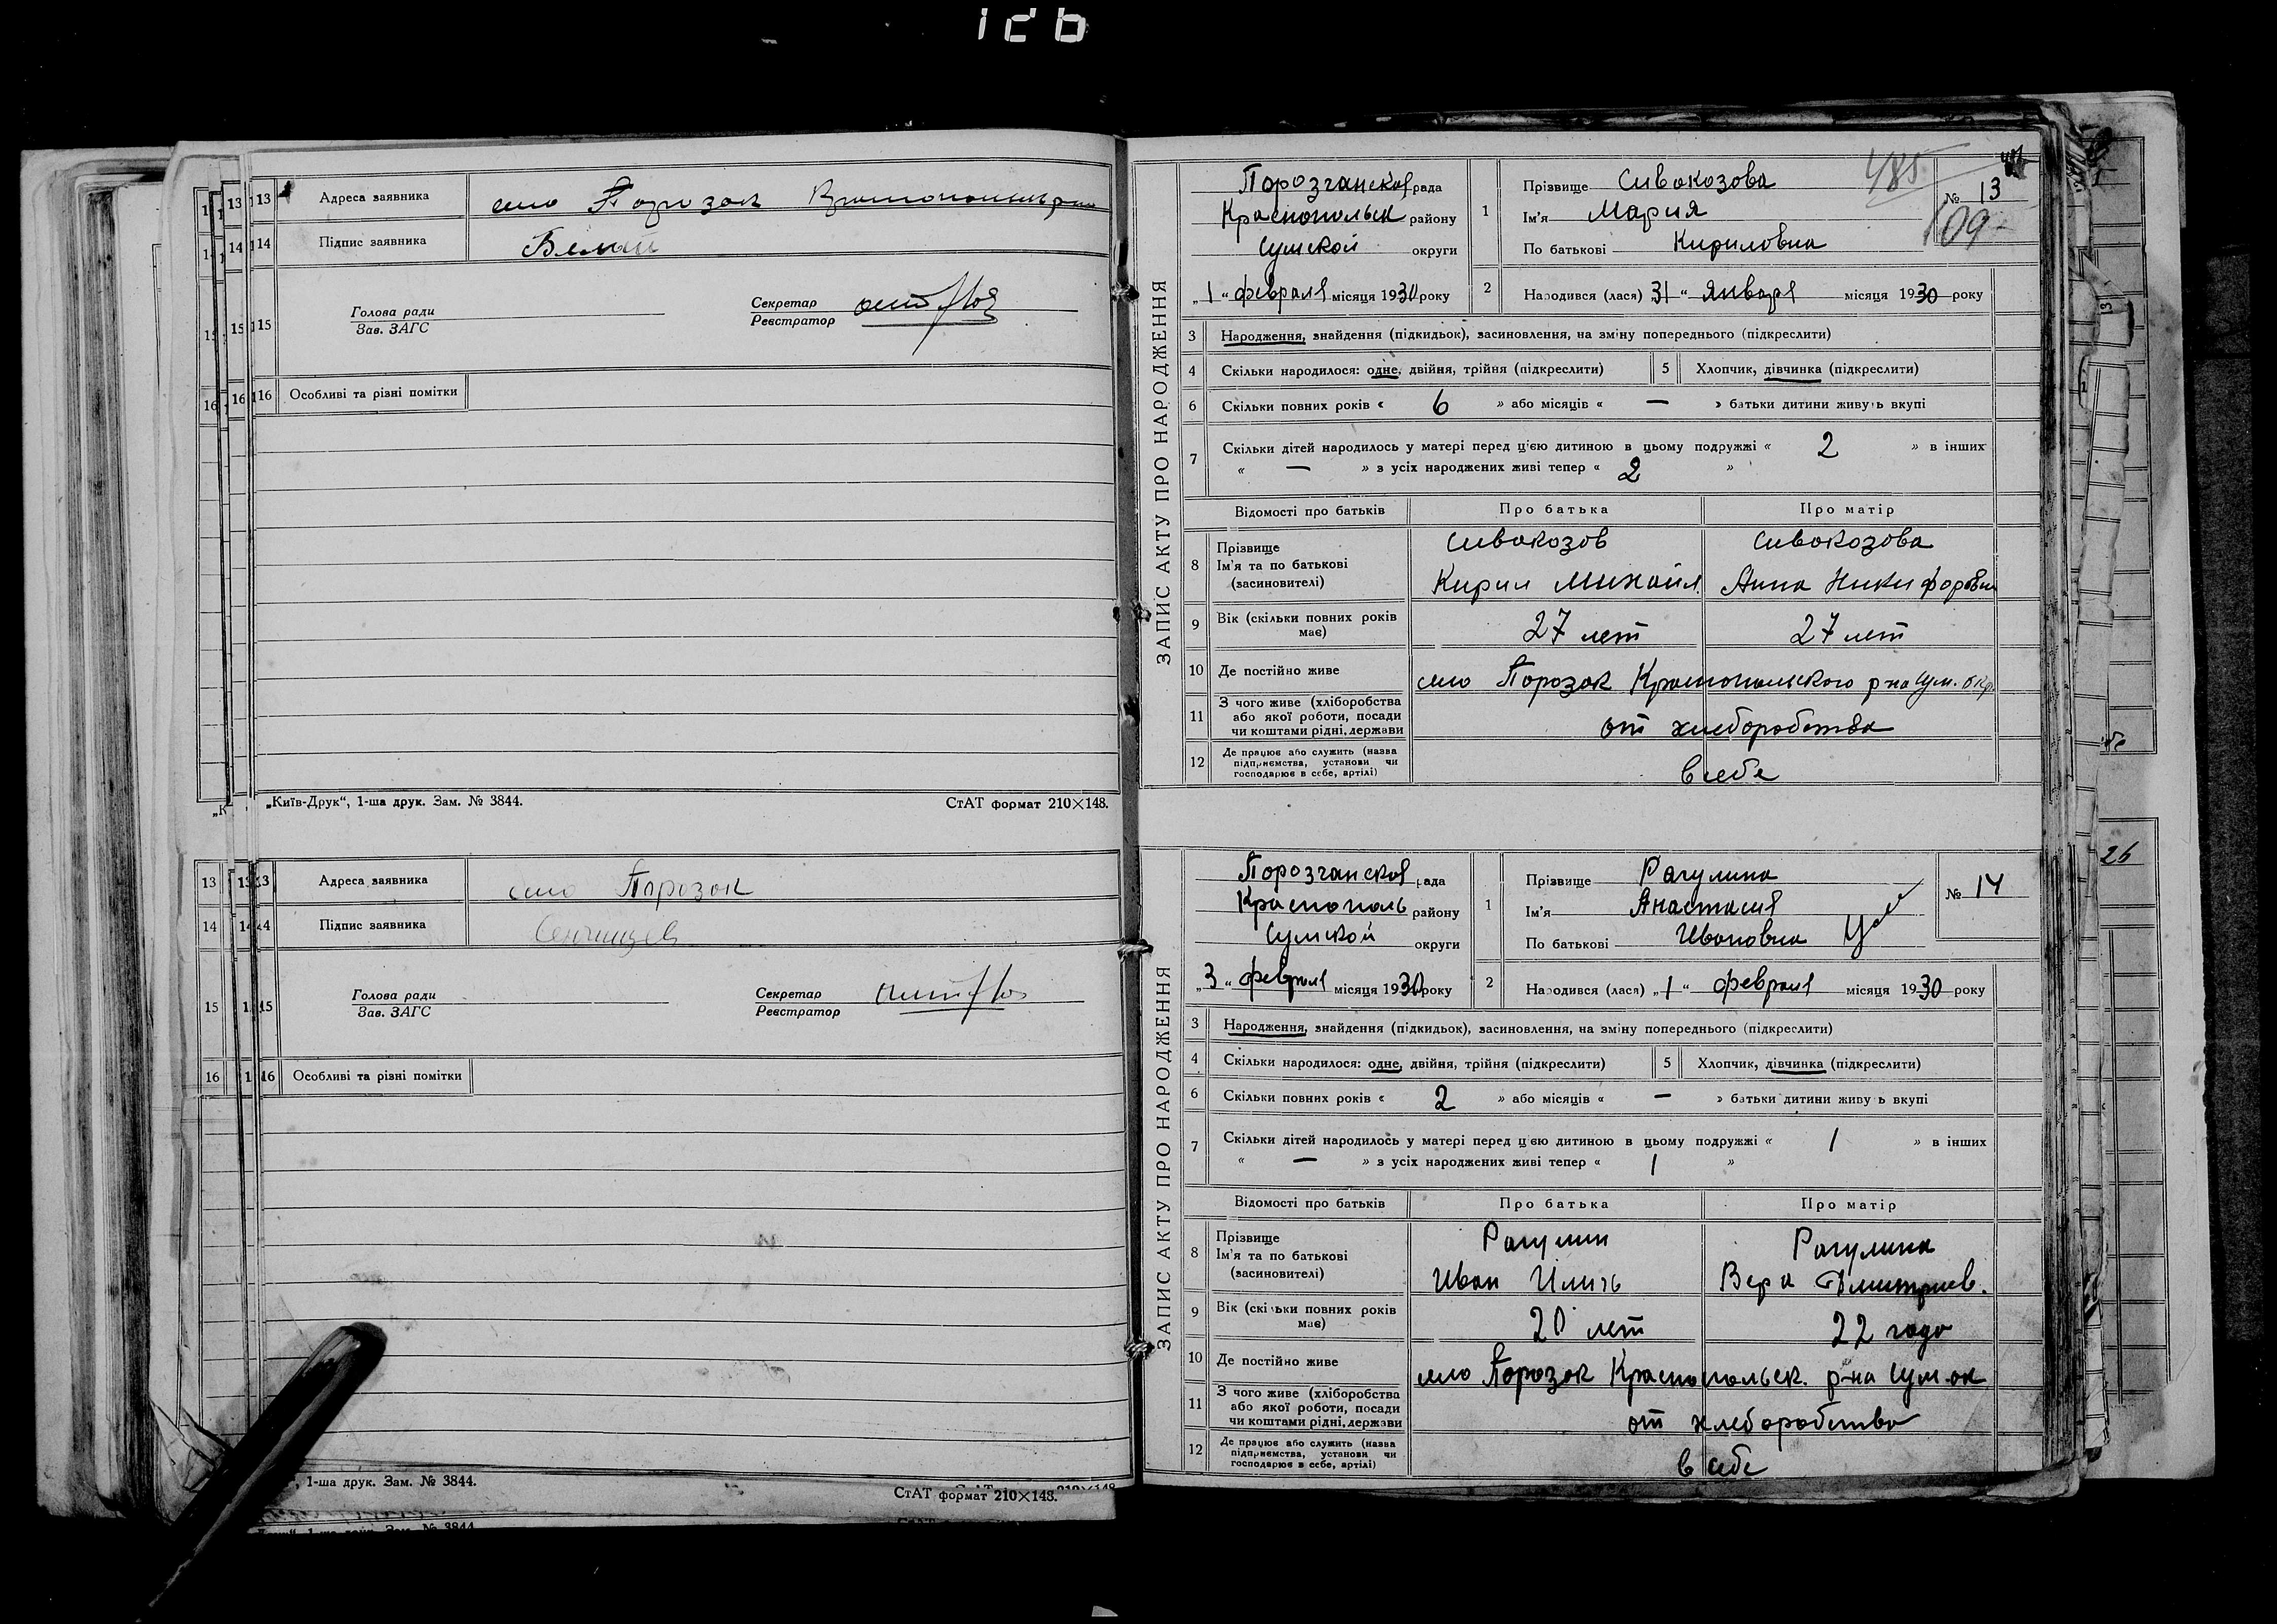 126
13 Адреса заявника село Порозок
14 Підпис заявника Белый
15 Голова ради
Зав. ЗАГС
Секретар
Реєстратор
16 Особливі та різні помітки
„Київ-Друк“, 1-ша друк. Зам. № 3844. СтАТ формат 210×148.
13 Адреса заявника село Порозок
14 Підпис заявника
15 Голова ради
Зав. ЗАГС
Секретар
Реєстратор
16 Особливі та різні помітки
1-ша друк. Зам. № 3844.
СтАТ формат 210×148.
ЗАПИС АКТУ ПРО НАРОДЖЕННЯ
Порозчанской рада
Краснопольск району
Сумской округи
„1“ февраля місяця 1930 року
485
№ 13
109
1 Прізвище Сивокозова
Ім'я Мария
По батькові Кириловна
2 Народився (лася) 31 “ января місяця 1930 року
3 Народження, знайдення (підкидьок), засиновлення, на зміну попереднього (підкреслити)
4 Скільки народилося: одне, двійня, трійня (підкреслити) 5 Хлопчик, дівчинка (підкреслити)
6 Скільки повних років « 6 » або місяців « — » батьки дитини живуть вкупі
7 Скільки дітей народилось у матері перед цією дитиною в цьому подружжі « 2 » в інших
« — » з усіх народжених живі тепер « 2 »
Відомості про батьків Про батька Про матір
8 Прізвище Ім'я та по батькові (засиновителі)
Сивокозов Сивокозова
Кирил Михайл. Анна Никифоровна
9 Вік (скільки повних років має) 27 лет 27 лет
10 Де постійно живе село Порозок Краснопольского р-на Сум. окр.
11 З чого живе (хліборобства або якої роботи, посади чи коштами рідні, держави от хлеборобства
12 Де працює або служить (назва підприємства, установи чи господарює в себе, артілі) в себе
ЗАПИС АКТУ ПРО НАРОДЖЕННЯ
Порозчанской рада
Краснополь району
Сумской округи
„3“ февраля місяця 1930 року
№ 14
1 Прізвище Рагулина
Ім'я Анастасия
По батькові Ивановна
2 Народився (лася) „1“ февраля місяця 1930 року
3 Народження, знайдення (підкидьок), засиновлення, на зміну попереднього (підкреслити)
4 Скільки народилося: одне, двійня, трійня (підкреслити) 5 Хлопчик, дівчинка (підкреслити)
6 Скільки повних років « 2 » або місяців « — » батьки дитини живуть вкупі
7 Скільки дітей народилось у матері перед цією дитиною в цьому подружжі « 1 » в інших
« — » з усіх народжених живі тепер « 1 »
Відомості про батьків Про батька Про матір
8 Прізвище Ім'я та по батькові (засиновителі)
Рагулин Рагулина
Иван Ильич Вера Дмитриев.
9 Вік (скільки повних років має) 20 лет 22 года
10 Де постійно живе село Порозок Краснопольск. р-на Сум. ок
11 З чого живе (хліборобства або якої роботи, посади чи коштами рідні, держави от хлеборобства
12 Де працює або служить (назва підприємства, установи чи господарює в себе, артілі) в себе
26